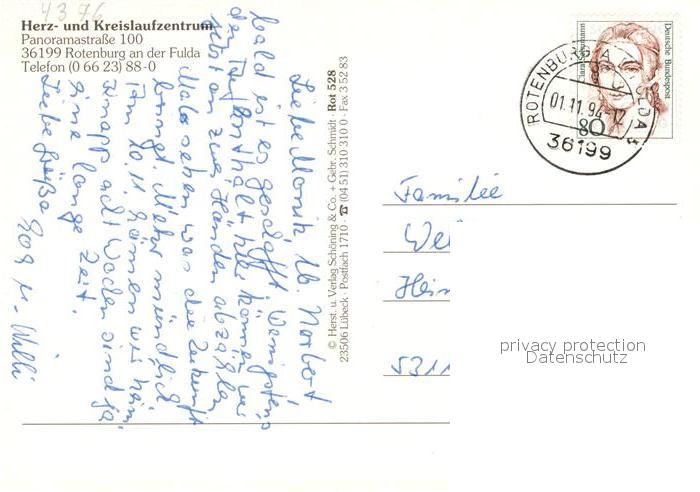 43 76
Herz- und Kreislaufzentrum
Panoramastraße 100
36199 Rotenburg an der Fulda
Telefon (0 66 23) 88-0
Liebe Monika, lb. Norbert
bald ist es geschafft. Wenigstens
den Aufenthalt hier können wir
zwei Händen abzählen
Mal sehen was die Zukunft
bringt. Mehr mündlich
Am 20.11 können wir heim
knapp acht Wochen sind ja
eine lange Zeit.
Liebe Grüße
Willi
© Herst. u. Verlag Schöning & Co. + Gebr. Schmidt · Rot 528
23506 Lübeck · Postfach 1710 · ☎ (04 51) 310 310 0 · Fax 3 52 83
Clara Schumann
Deutsche Bundespost
80
ROTENBURG A FULDA
01.11.94-12
36199
Familie
We
Hein
5311
privacy protection
Datenschutz